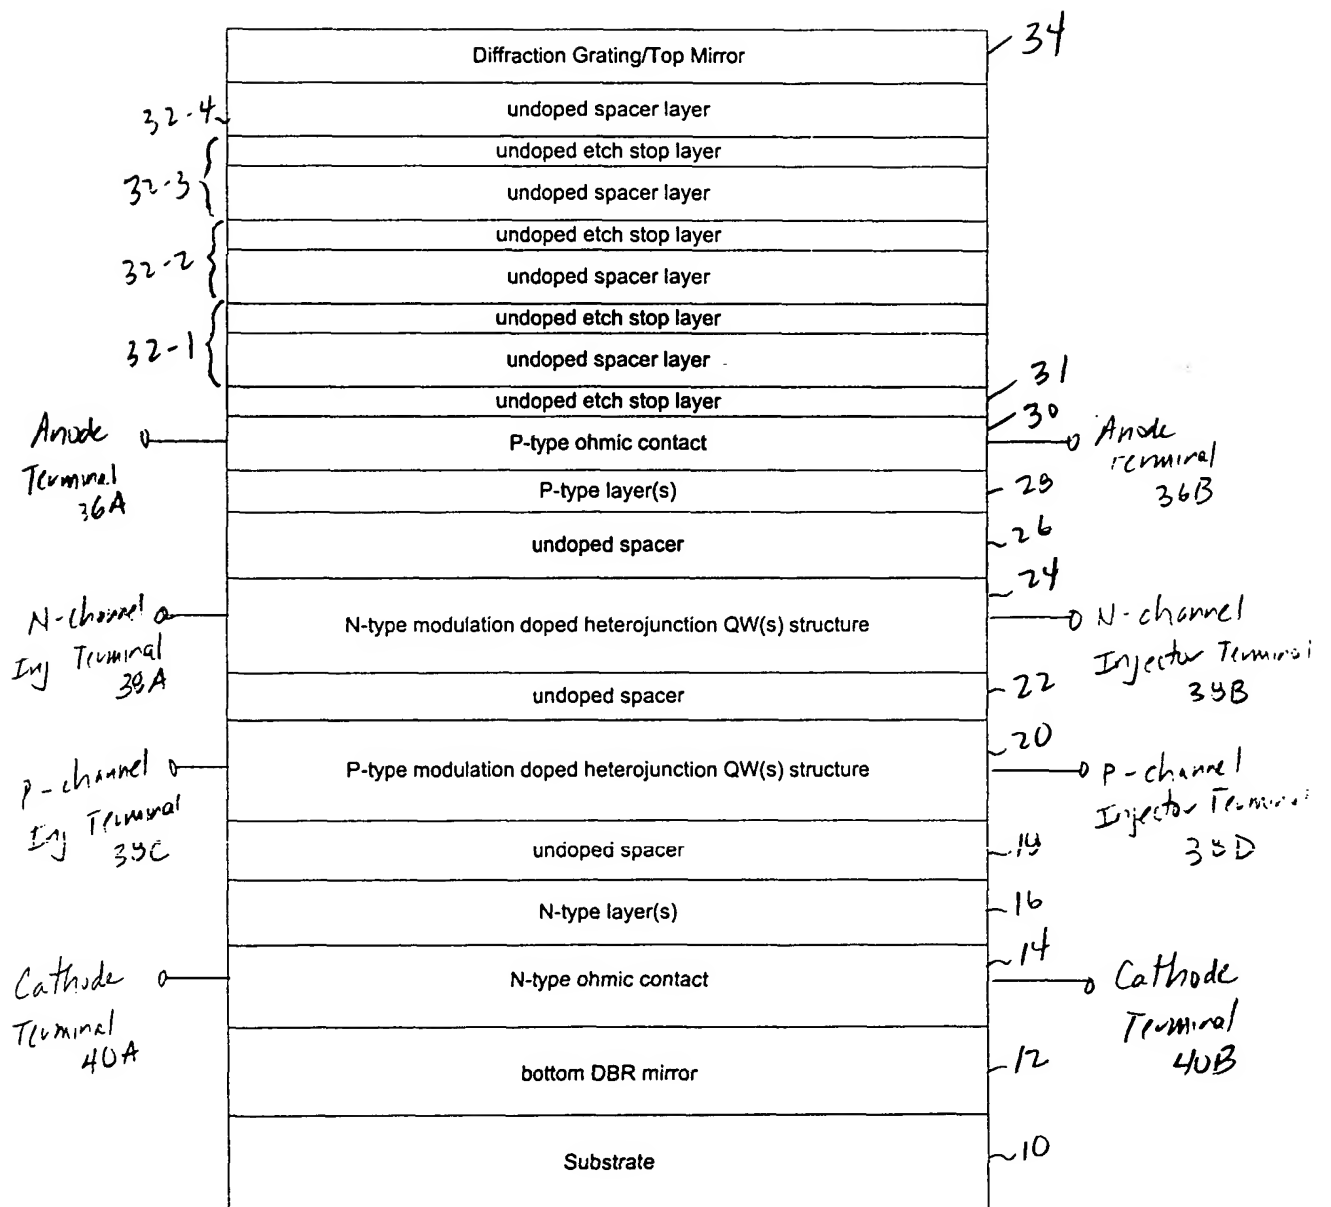 Diffraction Grating/Top Mirror
34
32-4
undoped spacer layer
undoped etch stop layer
32-3
undoped spacer layer
undoped etch stop layer
32-2
undoped spacer layer
undoped etch stop layer
32-1
undoped spacer layer
31
undoped etch stop layer
30
Anode
Terminal
36A
P-type ohmic contact
Anode
Terminal
36B
P-type layer(s)
28
undoped spacer
26
24
N-channel
Inj Terminal
38A
N-type modulation doped heterojunction QW(s) structure
N-channel
Injector Terminal
38B
undoped spacer
22
20
P-channel
Inj Terminal
38C
P-type modulation doped heterojunction QW(s) structure
P-channel
Injector Terminal
38D
undoped spacer
18
N-type layer(s)
16
14
Cathode
Terminal
40A
N-type ohmic contact
Cathode
Terminal
40B
bottom DBR mirror
12
Substrate
10